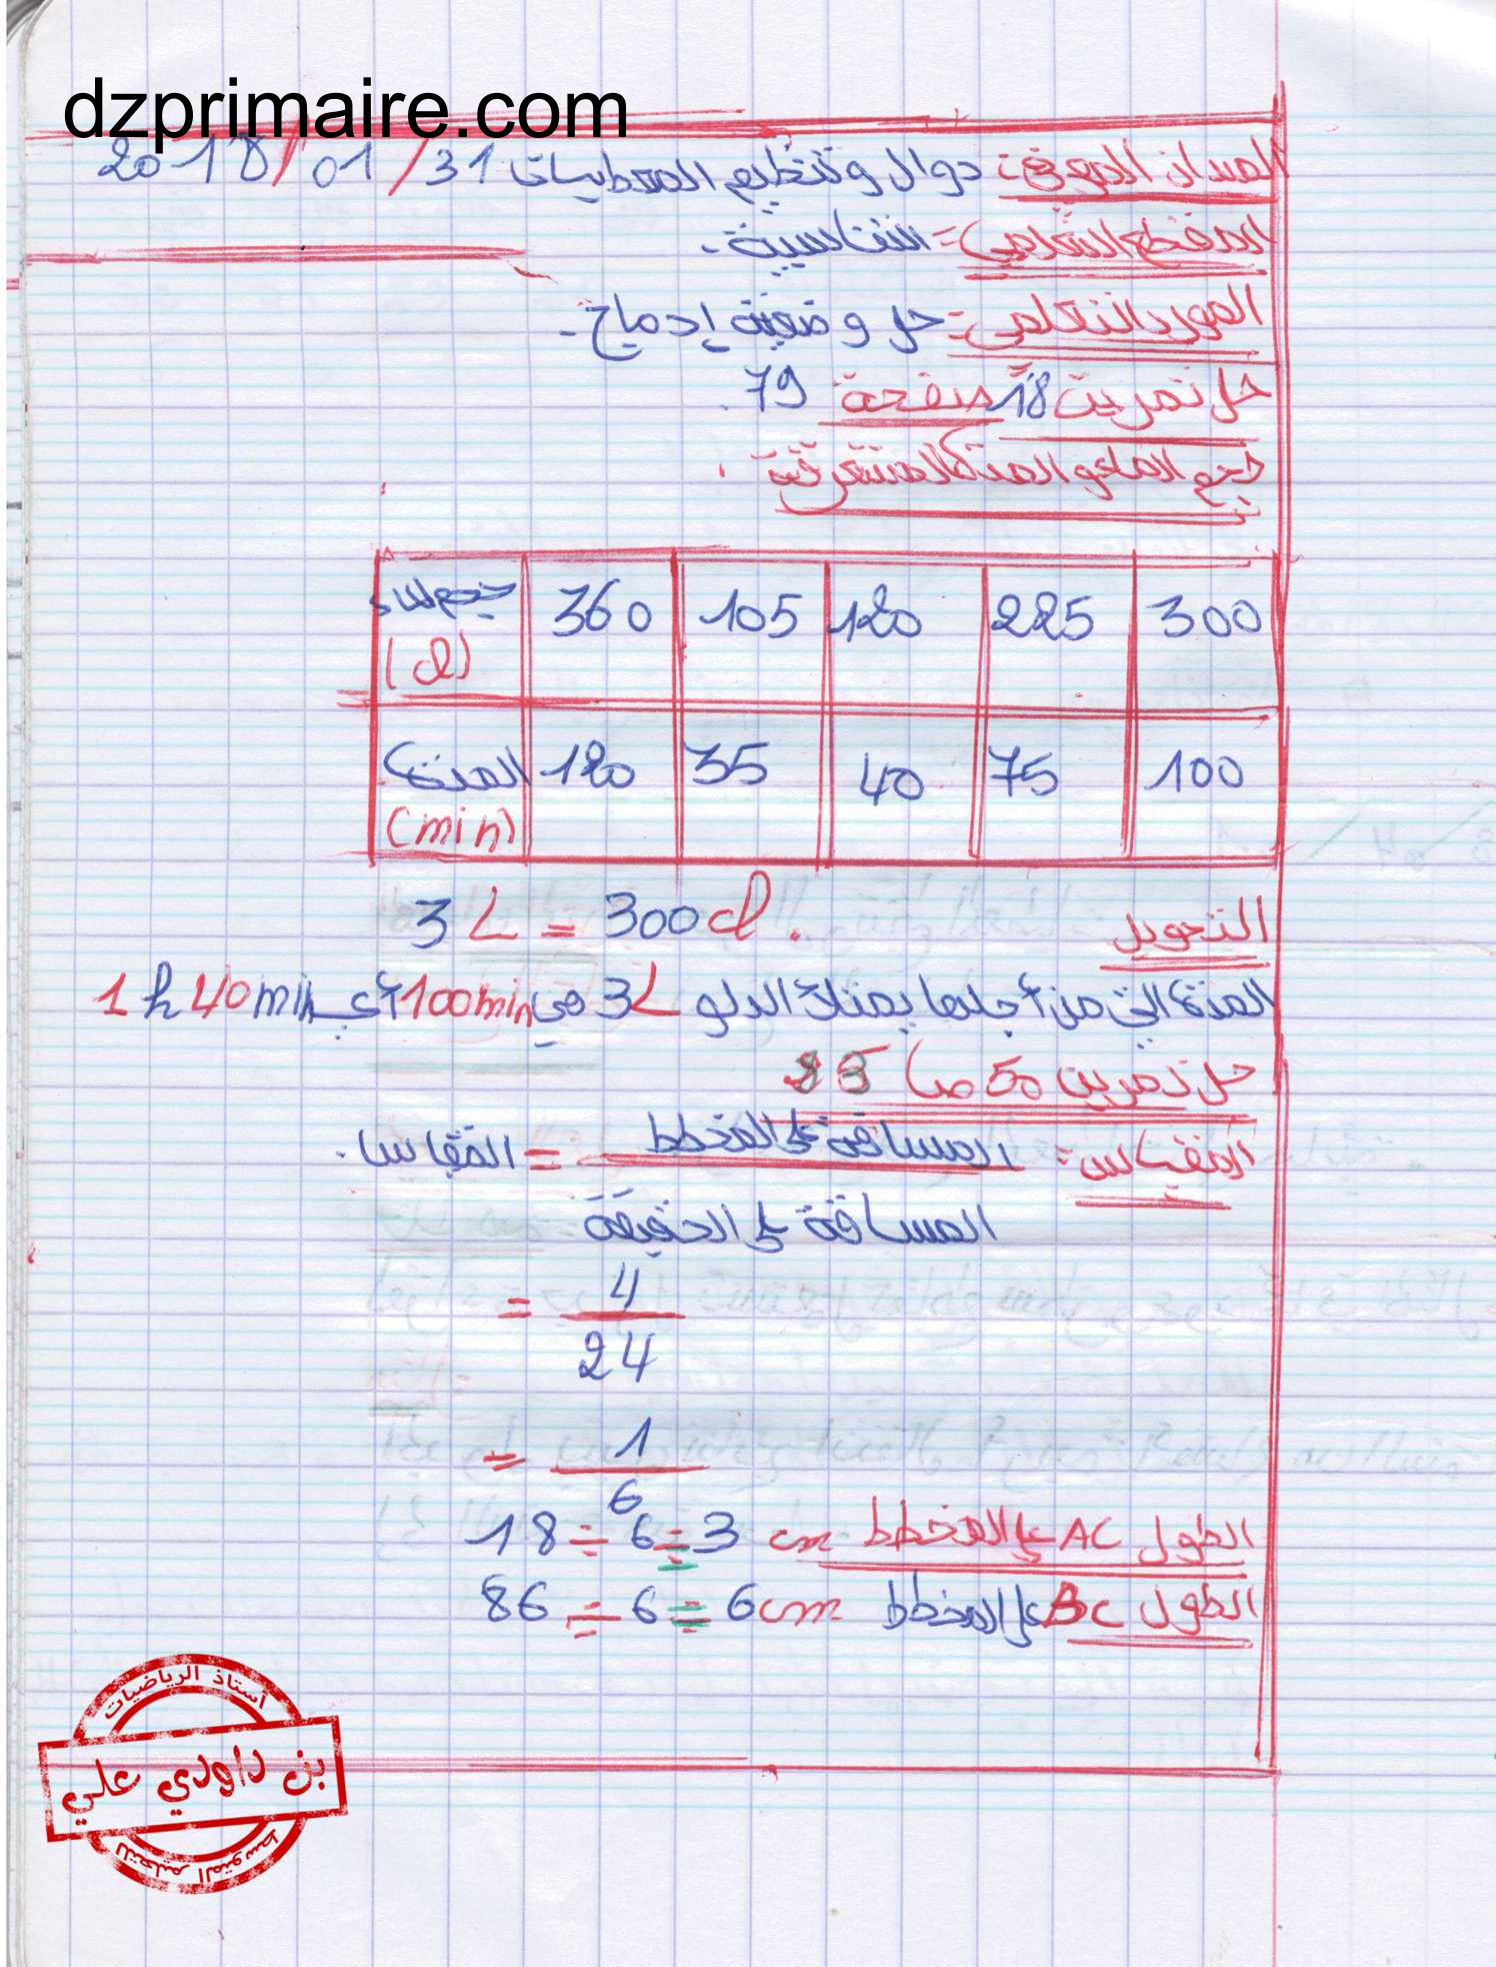 dzprimaire.com
الميدان المعرفي: دوال وتنظيم المعطيات 31/01/2018
المقطع التعلمي: التناسبية.
المورد التعلمي: حل وضعية إدماج.
حل تمرين 18 صفحة 79.
حجم الماء و المدة المستغرقة.
حجم الماء (cl) 360 105 120 225 300
المدة (min) 120 35 40 75 100
التحويل 3L = 300cl.
المدة التي من أجلها يمتلئ الدلو 3L هي 100min أي 1h 40min
حل تمرين 50 ص 83
المقياس: المسافة على المخطط = المقياس.
المسافة على الحقيقة
= 4
24
= 1
6
الطول AC على المخطط 18 ÷ 6 = 3 cm
الطول BC على المخطط 86 ÷ 6 = 6cm
أستاذ الرياضيات
بن داودي علي
للتعليم المتوسط